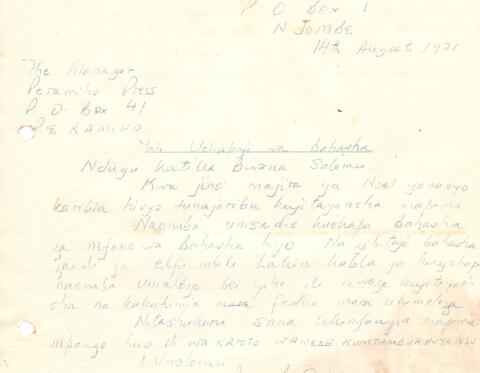 P O Box 1
NJOMBE
14th August 1971
The Manager
Peramiho Press
P. O. Box 41
PERAMIHO.
Yah Uchapaji wa Bahasha
Ndugu Katika Bwana Salamu.
Kwa jinsi majira ya Noel yanavyo
karibia hivyo tunajaribu kujitayarisha mapema.
Naomba unisaidie kuchapa Bahasha
za mfano wa Bahasha hiyo Na zihitaji bahasha
zaidi ya elfu mbili Lakini kabla ya kuzichapa
naomba unieleze bei yake ili niweze kujitayari-
sha na kukutumia fedha mara ukinieleza
Nitashukuru sana ukinifanyia mapema
mpango huo ili WAKRISTO WAWEZE KUMTAMBUA